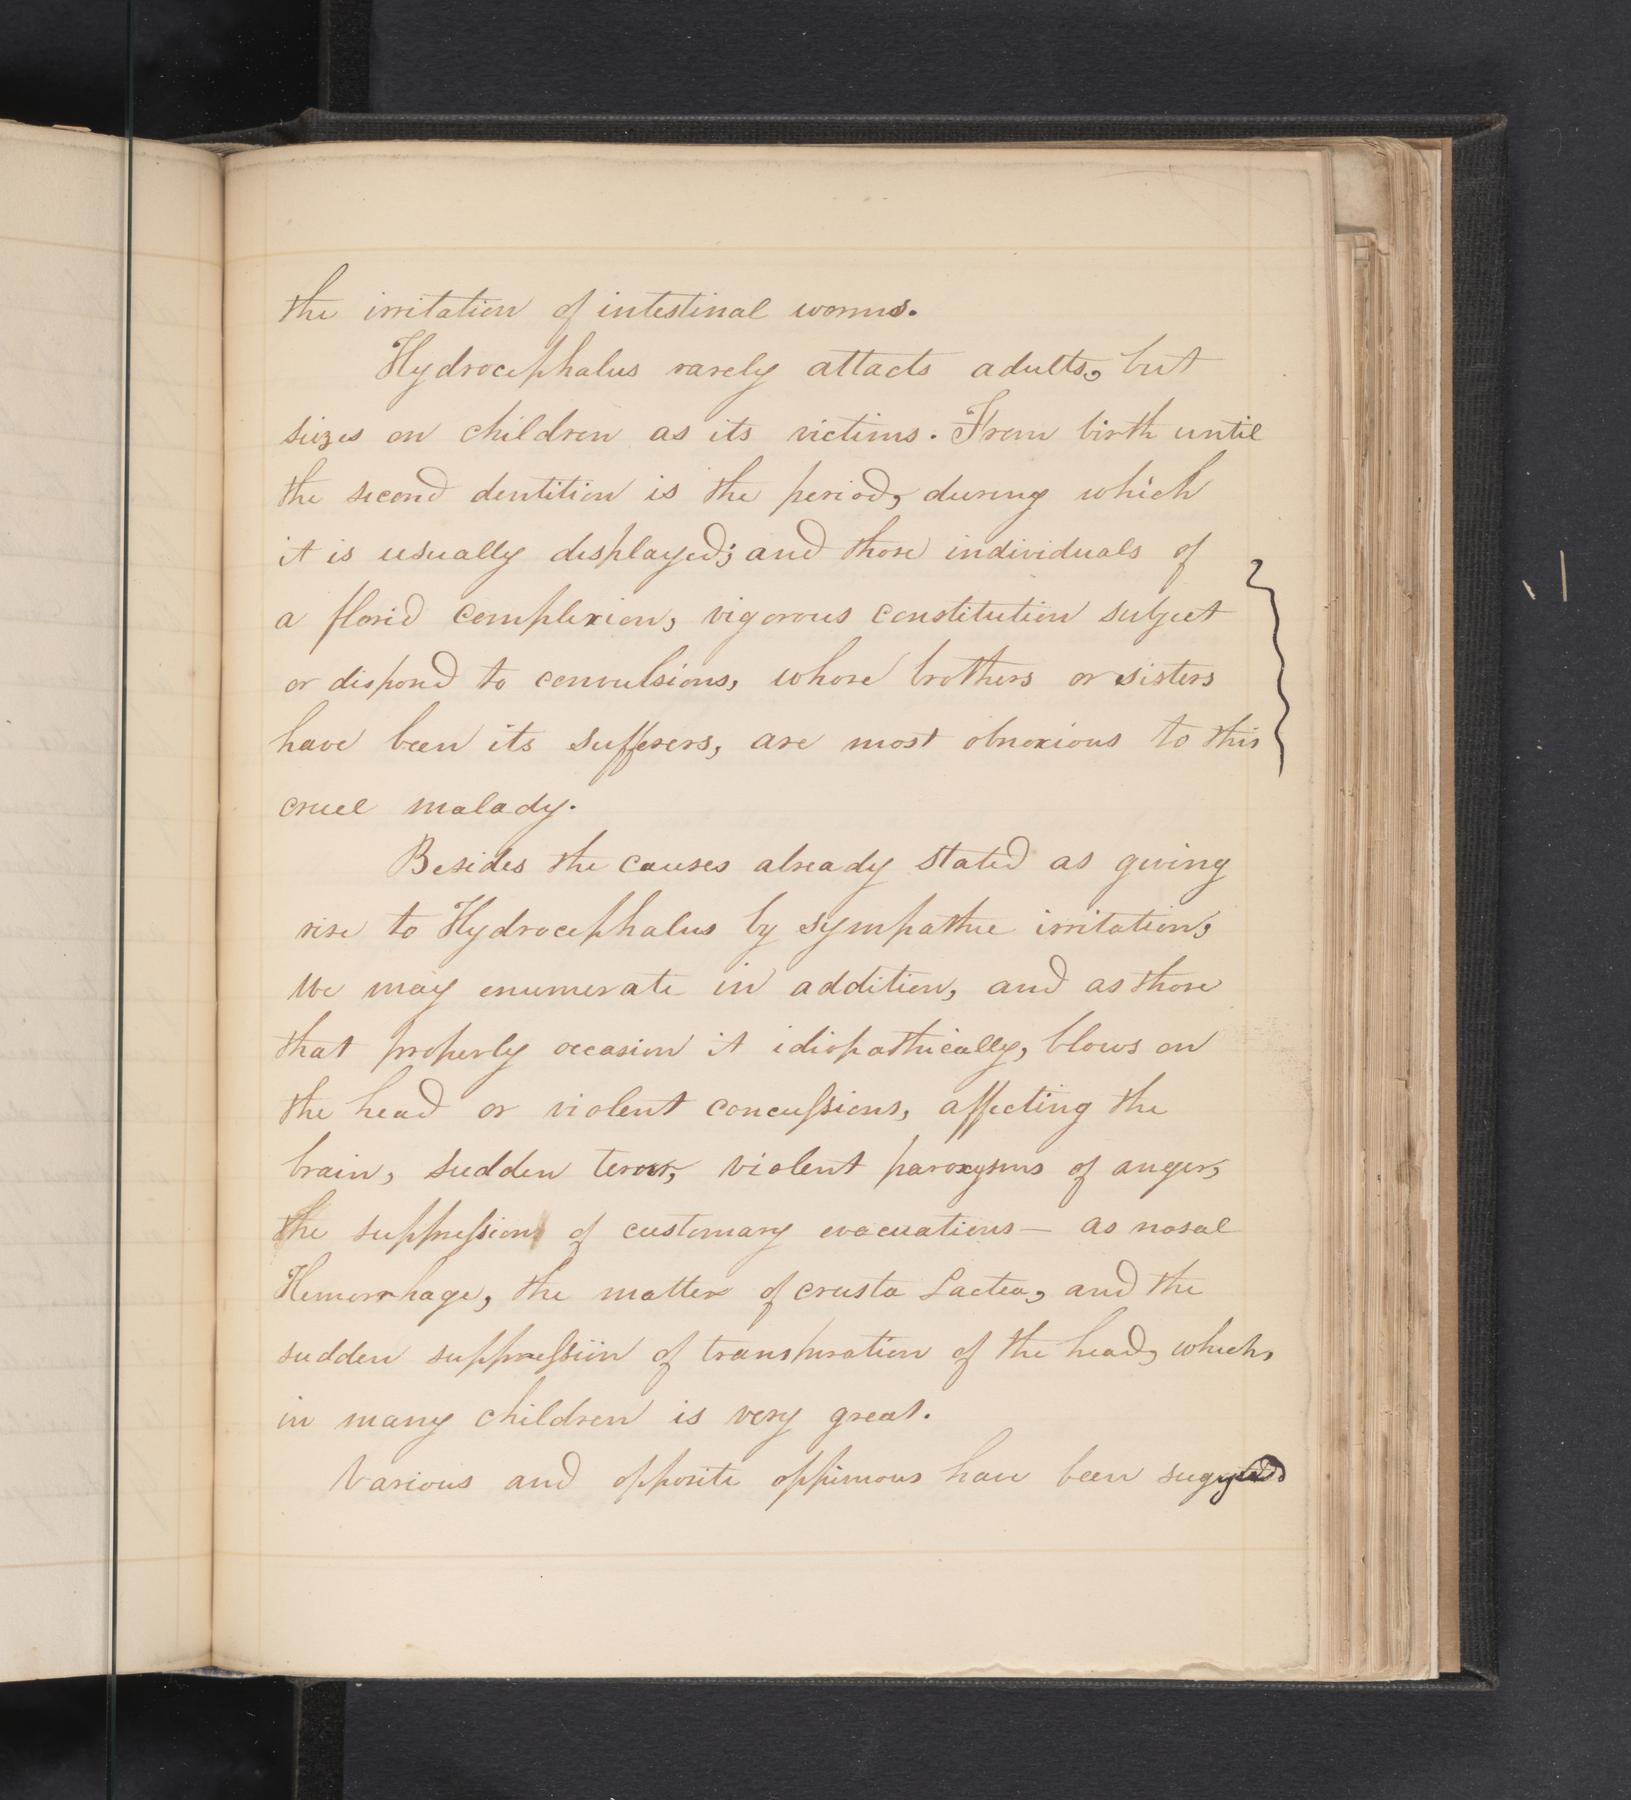 the irritation of intestinal worms.
Hydrocephalus rarely attacts adults, but
siezes on children as its victims. From birth until
the second dentition is the period, during which
it is usually displayed; and those individuals of
a florid complexion, vigorous constitution subject
or dispond to convulsions, whose brothers or sisters
have been its sufferers, are most obnoxious to this
cruel malady.
Besides the causes already stated as giving
rise to Hydrocephalus by sympathic irritation,
we may enumerate in addition, and as those
that properly occasion it idiopathically, blows on
the head or violent concussions, affecting the
brain, sudden terror, violent paroxysms of anger,
the suppression of customary evacuations — as nasal
Hemorrhage, the matter of crusta Lactea, and the
sudden suppression of transpiration of the head, which,
in many children is very great.
Various and opposite oppinions have been sugysted